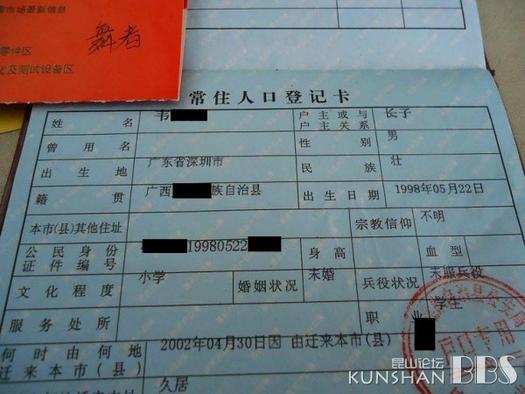 舞者
常住人口登记卡
姓名 韦 户主或与户主关系 长子
曾用名 性别 男
出生地 广东省深圳市 民族 壮
籍贯 广西 族自治县 出生日期 1998年05月22日
本市(县)其他住址 宗教信仰 不明
公民身份证件编号 19980522 身高 血型
文化程度 小学 婚姻状况 未婚 兵役状况 未服兵役
服务处所 职业 学生
何时由何地迁来本市(县) 2002年04月30日因 由迁来本市(县)
久居
昆山论坛
KUNSHAN BBS